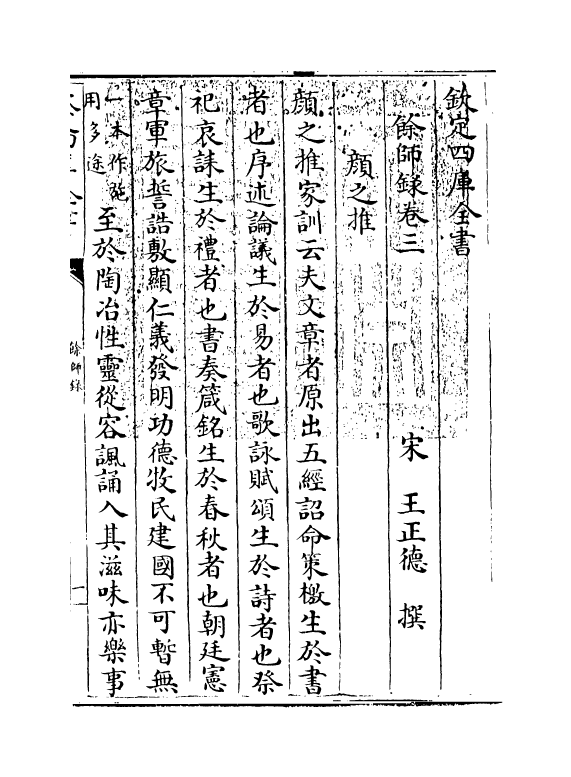 欽定四庫全書
餘師錄卷三
宋 王正德 撰
顔之推
顔之推家訓云夫文章者原出五經詔命策檄生於書
者也序述論議生於易者也歌詠賦頌生於詩者也祭
祀哀誄生於禮者也書奏箴銘生於春秋者也朝廷憲
章軍旅誓誥敷顯仁義發明功德牧民建國不可暫無
一本作施用多途
至於陶冶性靈從容諷誦入其滋味亦樂事
餘師錄
一